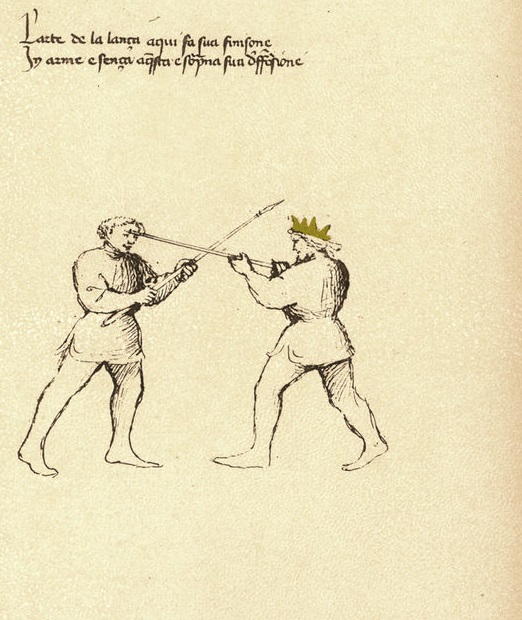 L'arte de la lança aqui fa sua finisone
In arme e sença aq̃sta e sop̃na sua difẽsione